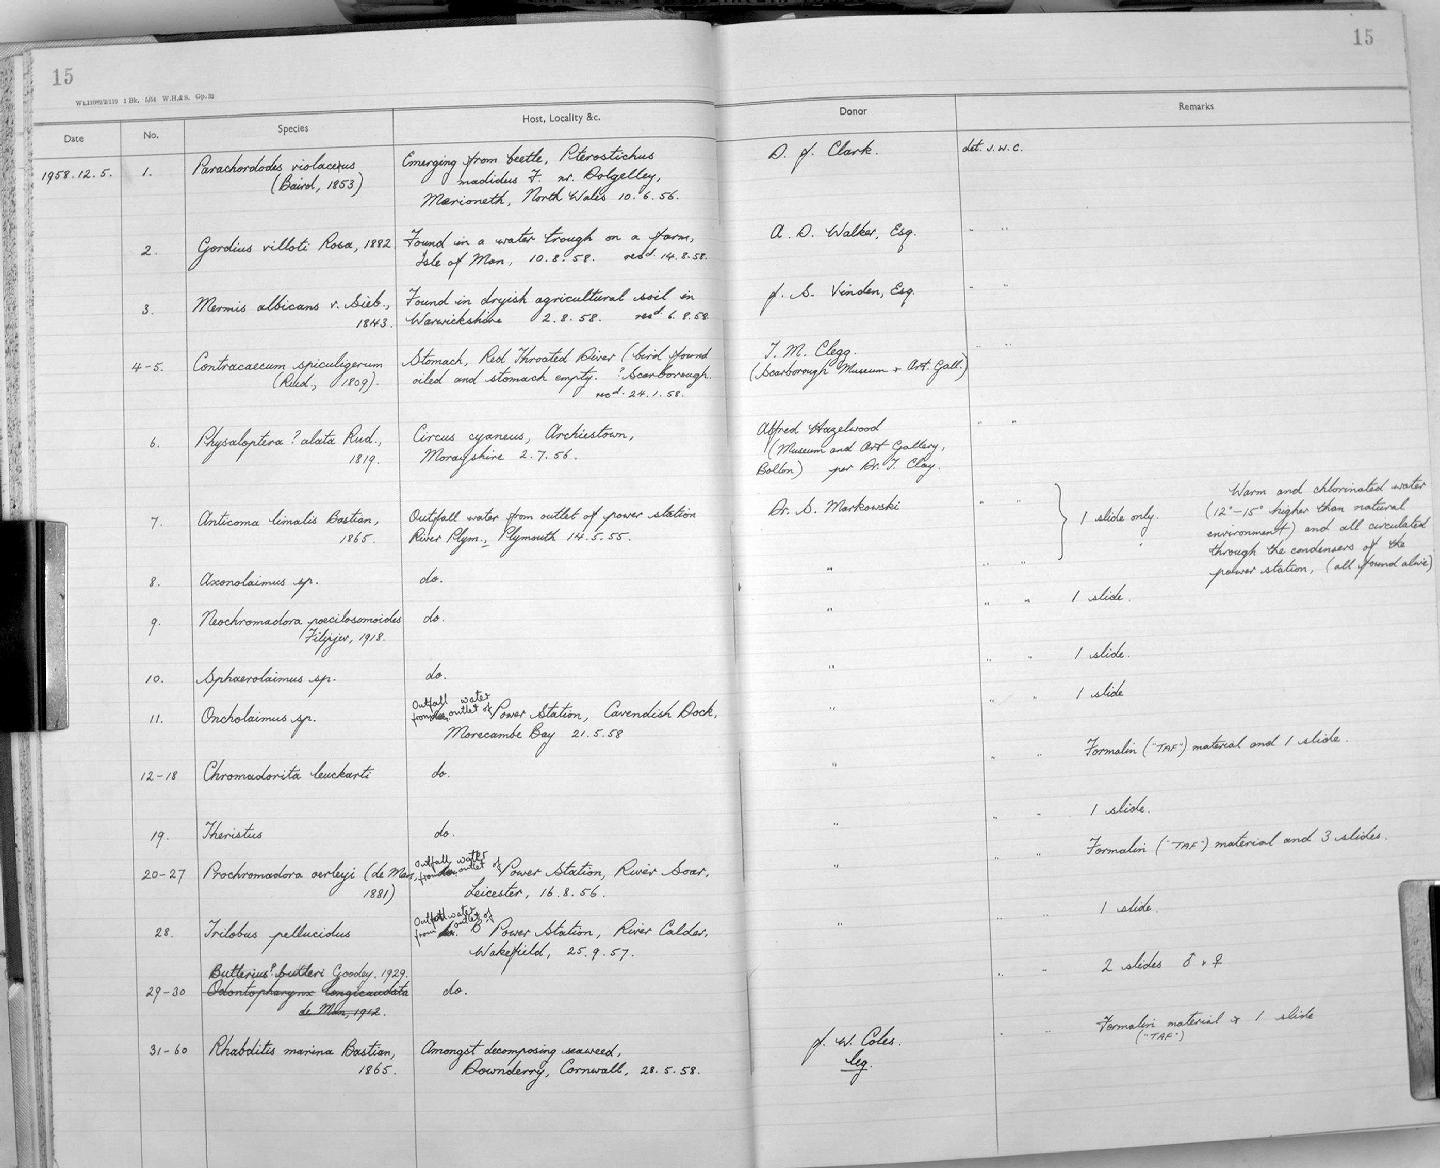 15
15
Wt.11089/2119 1 Bk. 5/54 W.H.&S. Gp.32
Date No. Species Host, Locality &c. Donor Remarks
1958.12.5. 1. Parachordodes violaceus Emerging from beetle, Pterostichus D. J. Clark. det. J.W.C.
(Baird, 1853) madidus F. nr. Dolgelley,
Merioneth, North Wales 10.6.56.
2. Gordius villoti Rosa, 1882 Found in a water trough on a farm, A. D. Walker, Esq. " "
Isle of Man, 10.8.58. recd. 14.8.58.
3. Mermis albicans v. Sieb., Found in dryish agricultural soil in J. S. Vinden, Esq. " "
1843. Warwickshire 2.8.58. recd. 6.8.58.
4-5. Contracaecum spiculigerum Stomach, Red Throated Diver (bird found T. M. Clegg. " "
(Rud., 1809). oiled and stomach empty. ?Scarborough. (Scarborough Museum + Art. Gall.)
recd. 24.1.58.
6. Physaloptera ? alata Rud., Circus cyaneus, Archiestown, Alfred Hazelwood " "
1819. Morayshire 2.7.56. (Museum and Art Gallery,
Bolton) per Dr. T. Clay.
7. Anticoma limalis Bastian, Outfall water from outlet of power station Dr. S. Markowski " " } 1 slide only. Warm and chlorinated water
1865. River Plym., Plymouth 14.5.55. (12°-15° higher than natural
environment) and all circulated
through the condensers of the
power station, (all found alive)
8. Axonolaimus sp. do. " " "
9. Neochromadora poecilosomoides do. " " " 1 slide.
Filipjev, 1918.
10. Sphaerolaimus sp. do. " " " 1 slide.
11. Oncholaimus sp. Outfall water from outlet of Power Station, Cavendish Dock, " " " 1 slide
Morecambe Bay 21.5.58
12-18 Chromadorita leuckarti do. " " " Formalin ("TAF") material and 1 slide.
19. Theristus do. " " " 1 slide.
20-27 Prochromadora oerleyi (de Man, Outfall water from outlet of Power Station, River Soar, " " " Formalin ("TAF") material and 3 slides.
1881) Leicester, 16.8.56.
28. Trilobus pellucidus Outfall water from outlet of B Power Station, River Calder, " " " 1 slide.
Wakefield, 25.9.57.
Butlerius? butleri Goodey. 1929.
29-30 Odontopharynx longicaudata do. " " 2 slides ♂ + ♀
de Man, 1912.
31-60 Rhabditis marina Bastian, Amongst decomposing seaweed, J. W. Coles. " " Formalin material + 1 slide
1865. Downderry, Cornwall, 28.5.58. leg. ("TAF")